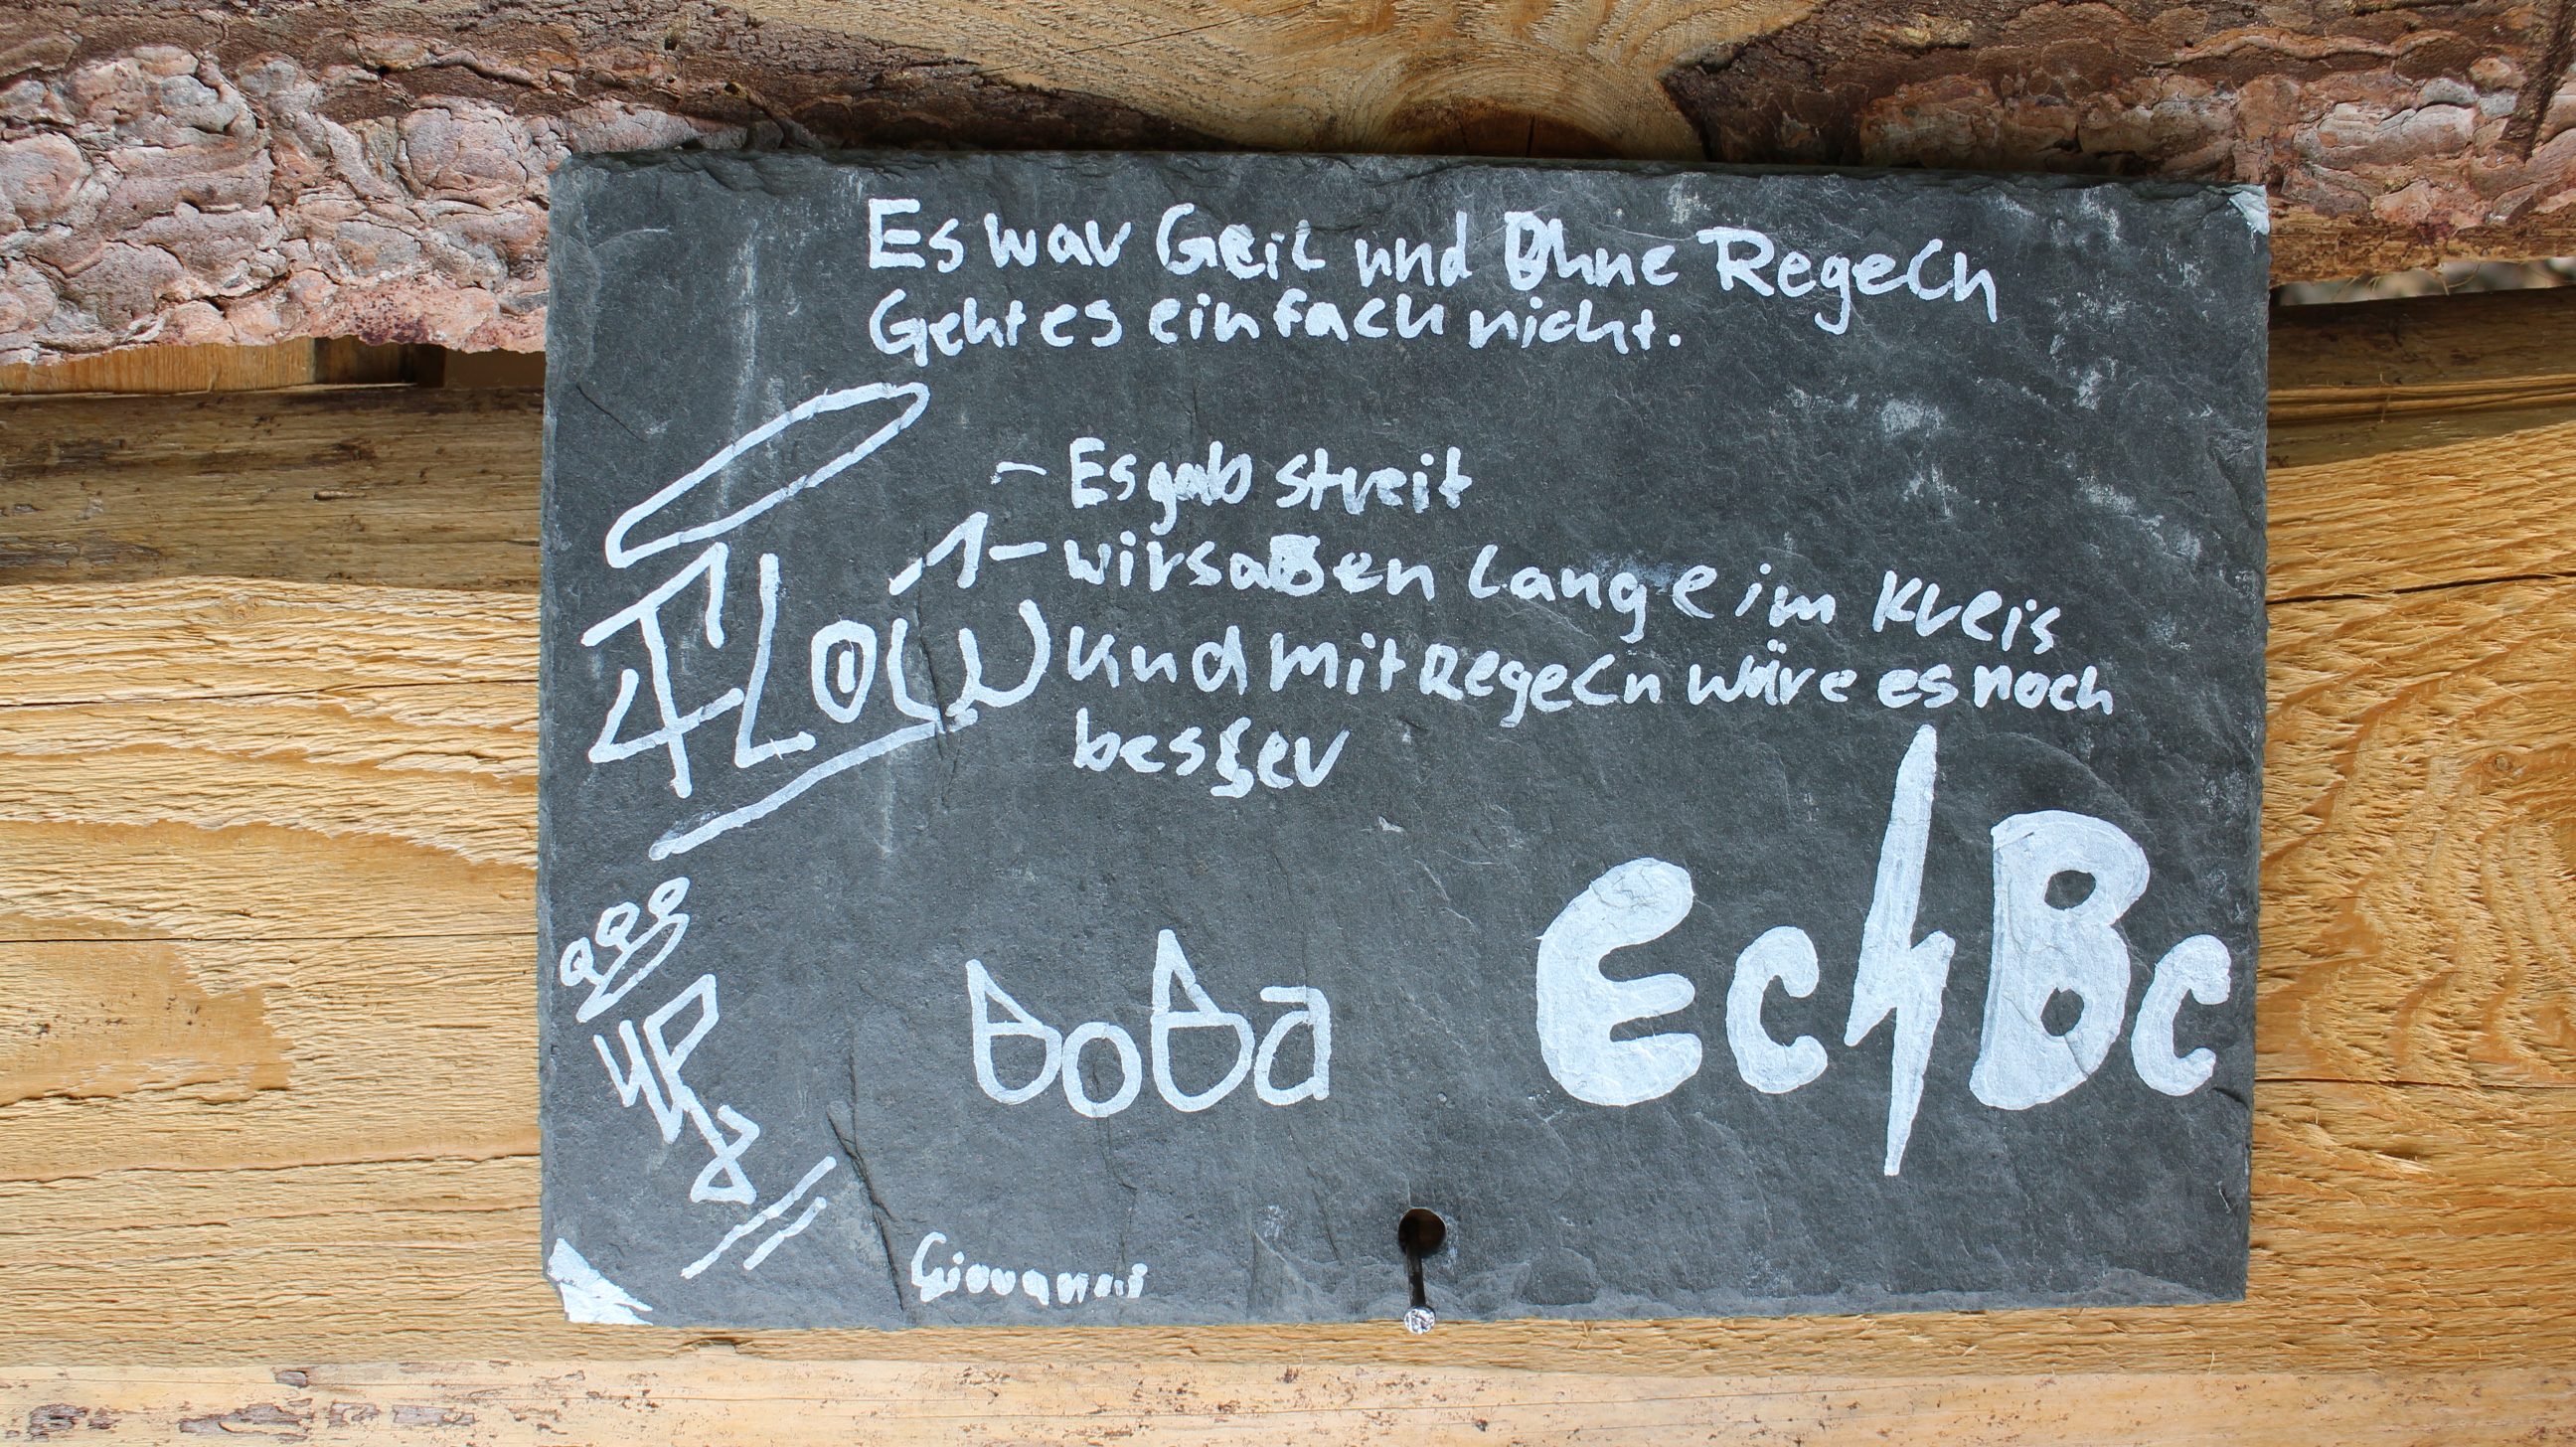 Es war Geil und Ohne Regeln
Geht es einfach nicht.
- Es gab streit
- wir saßen lange im Kreis
und mit Regeln wäre es noch
besser
FLOW
BoBa
Ec Bc
Giovanni